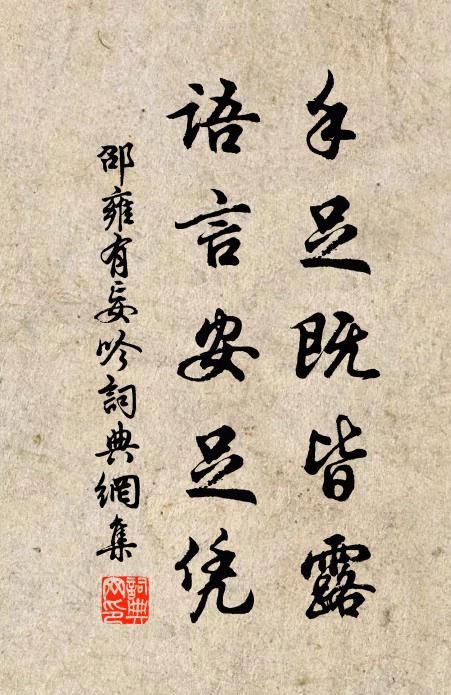 手足既皆露
语言安足凭
邵雍有妄吟詞典網集
詞典網印